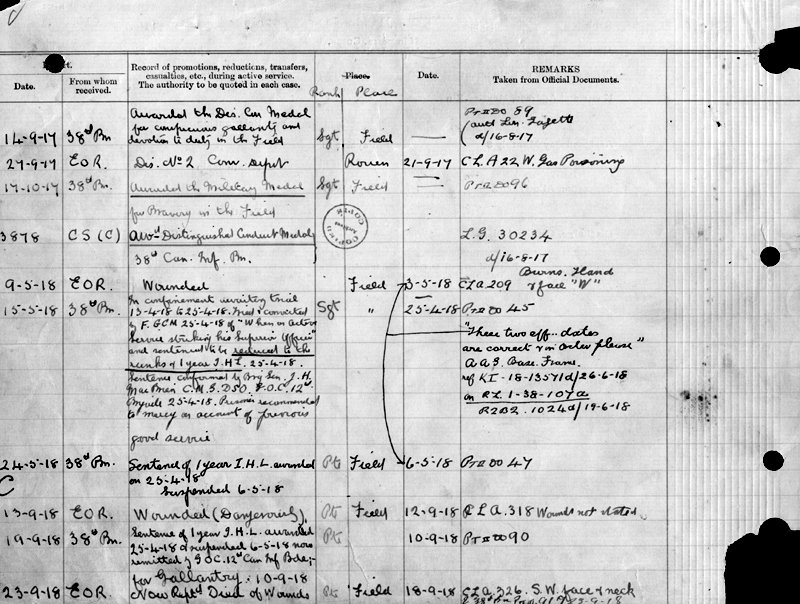 Date. From whom received. Record of promotions, reductions, transfers, casualties, etc., during active service. The authority to be quoted in each case. Place. Date. REMARKS Taken from Official Documents.
Rank Place
Awarded the Dis. Con Medal
for conspicuous gallantry and
devotion to duty in the Field
14-9-17 38th Bn. Sgt Field — Pt II DO 89
d/16-8-17
27-9-17 EOR. Dis. No 2. Con. Depot Rouen 21-9-17 CL. A 22 W. Gas Poisoning
17-10-17 38th Bn. Awarded the Military Medal Sgt Field — Pt II DO 96
for Bravery in the Field
3878 CS (C) Distinguished Conduct Medal L.G. 30234
38th Can. Inf. Bn. d/16-8-17
9-5-18 EOR. Wounded Field 3-5-18 CL A.209 Burns. Hand
& face "W"
15-5-18 38th Bn. In confinement awaiting trial Sgt " 25-4-18 Pt II DO 45
13-4-18 to 25-4-18. Tried & convicted
by F.GCM 25-4-18 of "When on Active
Service striking his Superior Officer"
and sentenced to be reduced to the
ranks & 1 year I.H.L. 25-4-18.
Sentence confirmed by Brig Gen. J.H.
MacBrien C.M.G. DSO. G.O.C. 12th
Brigade 25-4-18. Prisoner recommended
to mercy on account of previous
good service
"These two eff.. dates
are correct & in order please"
A A G. Base. Frans.
ref KI-18-13571 d/26-6-18
on RL 1-38-107a
R2B2. 1024 d/19-6-18
24-5-18 38th Bn. Sentence of 1 year I.H.L. awarded Pte Field 6-5-18 Pt II DO 47
on 25-4-18
Suspended 6-5-18
13-9-18 EOR. Wounded (Dangerously) Pte Field 12-9-18 CL A.318 Wounds not stated.
19-9-18 38th Bn. Sentence of 1 year I.H.L. awarded Pte 10-9-18 Pt II DO 90
25-4-18 & suspended 6-5-18 now
remitted by GOC. 12th Can Inf Bde,
for Gallantry. 10-9-18
23-9-18 EOR. Now Rept'd Died of Wounds Pte Field 18-9-18 CL A.326. S.W. face & neck